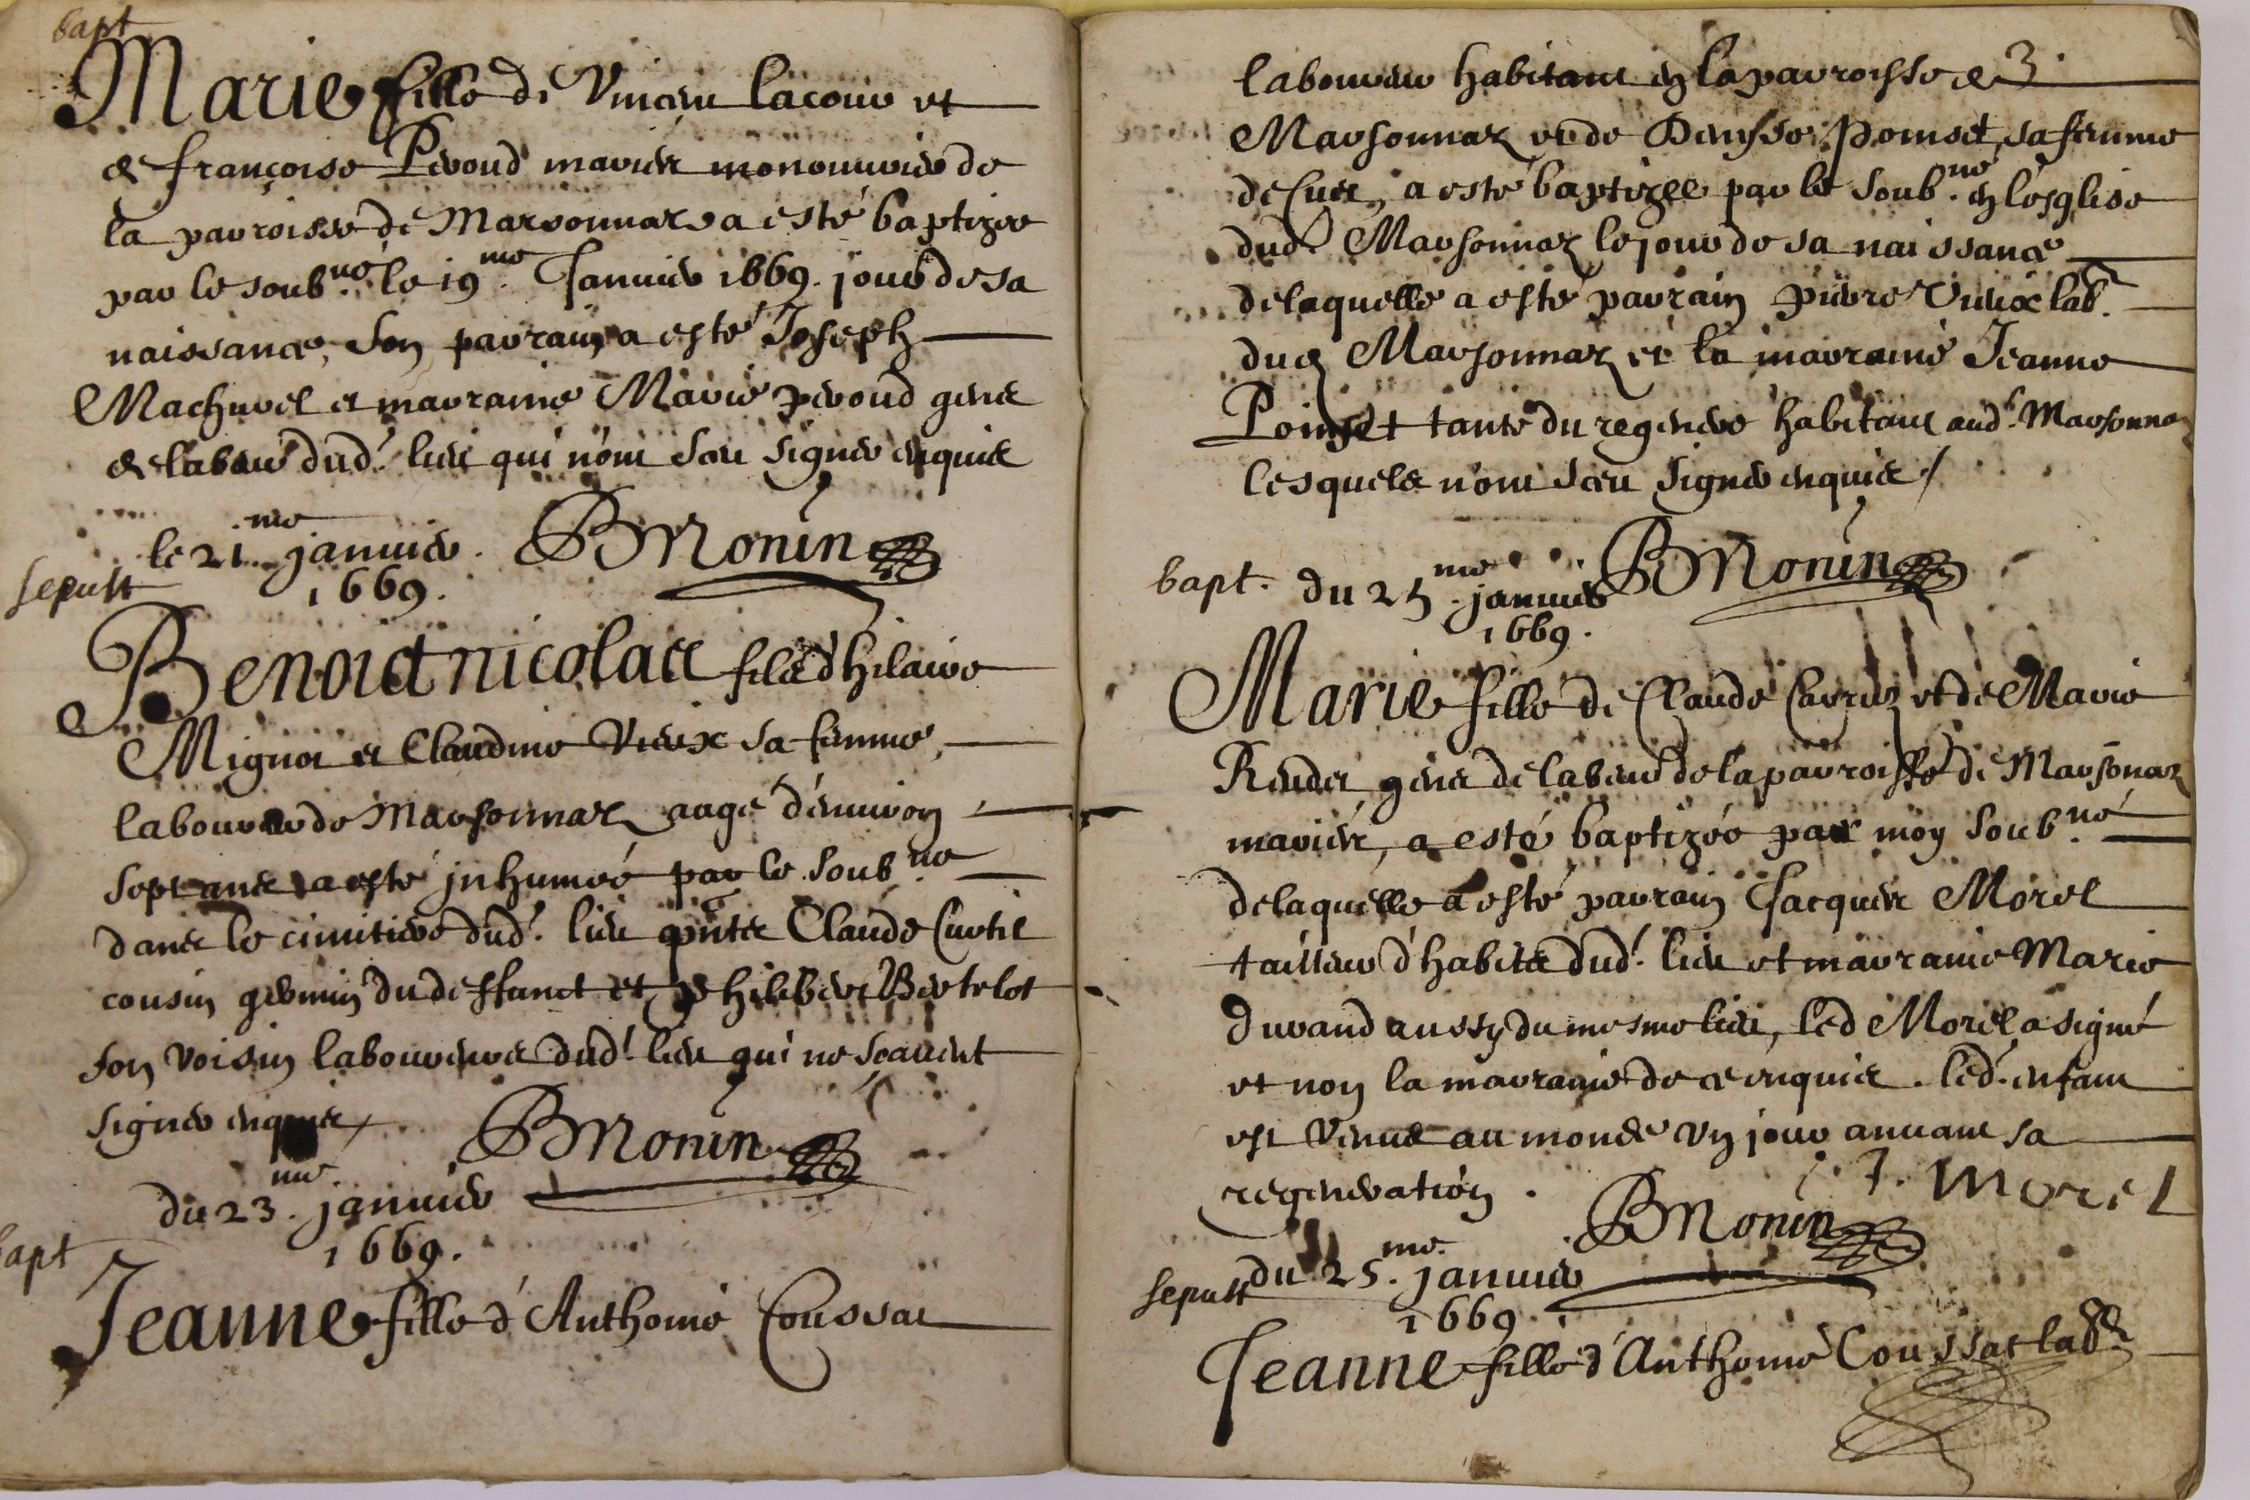 bapt
Marie fille de Vincen Lacour et
de françoise Peroud mariés monouurier de
la parroisse de Marsonnaz a esté baptizée
par le soub.né le 19.me Januier 1669. jour de sa
naissance, Son parrain a esté Joseph
Machurel et marraine Marie peroud gens
de labeur dud.t lieu qui nont sceu signer enquis
BMonin
le 21.me januier
1669.
sepult
Benoict nicolas fils d'hilaire
Mignot et Claudine Vieux sa femme,
laboureur de Marsonnaz aagé d'enuiron
sept ans a esté jnhumé par le soub.né
dans le cimitiere dud.t lieu pntes Claude Curtil
cousin germin du deffunct et philibert Bertelot
son voisin laboureurs dud.t lieu qui ne scauent
signer enquis
BMonin
du 23.me januier
1669.
bapt
Jeanne fille d'Anthoine Coussat
3
laboureur habitant en la parroisse de
Marsonnaz et de Denyse Poinset, sa femme
de Cuet, a esté baptizee par le soub.né en lesglise
dud.t Marsonnaz le jour de sa naissance
delaquelle a esté parrain pierre Vieux lab.r
dud Marsonnaz et la marraine Jeanne
Poinset tante du regeneré habitant aud.t Marsonna
lesquels nont sceu signer enquis
BMonin
bapt. du 25.me januier
1669.
Marie fille de Claude Carruz et de Marie
Rendet gens de labeur de la parroisse de Marsonaz
mariés, a esté baptizée par moy soub.né
delaquelle a esté parrain Jacques Morel
tailleur d'habits dud.t lieu et marraine Marie
Durand aussy du mesme lieu, led Morel a signé
et non la marraine de ce enquise. led.t enfant
est venue au monde un jour auuant sa
regeneration.
J. Morel
BMonin
sepult du 25.me januier
1669.
Jeanne fille d'Anthoine Coussat lab.r